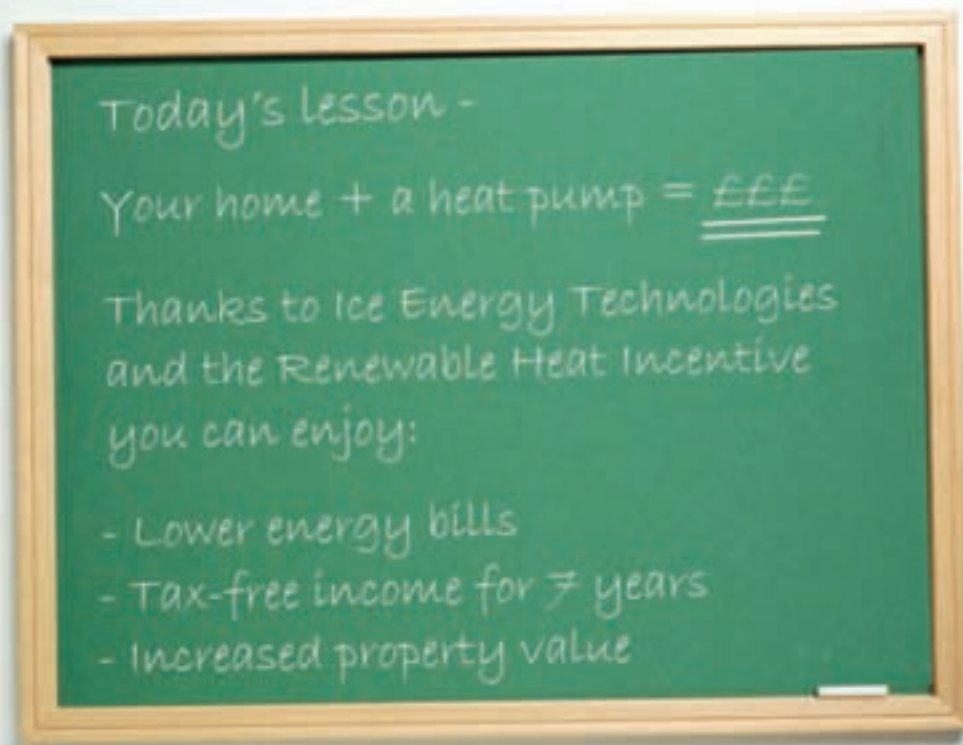 Today's lesson -
Your home + a heat pump = £££
Thanks to Ice Energy Technologies
and the Renewable Heat Incentive
you can enjoy:
- Lower energy bills
- Tax-free income for 7 years
- Increased property value